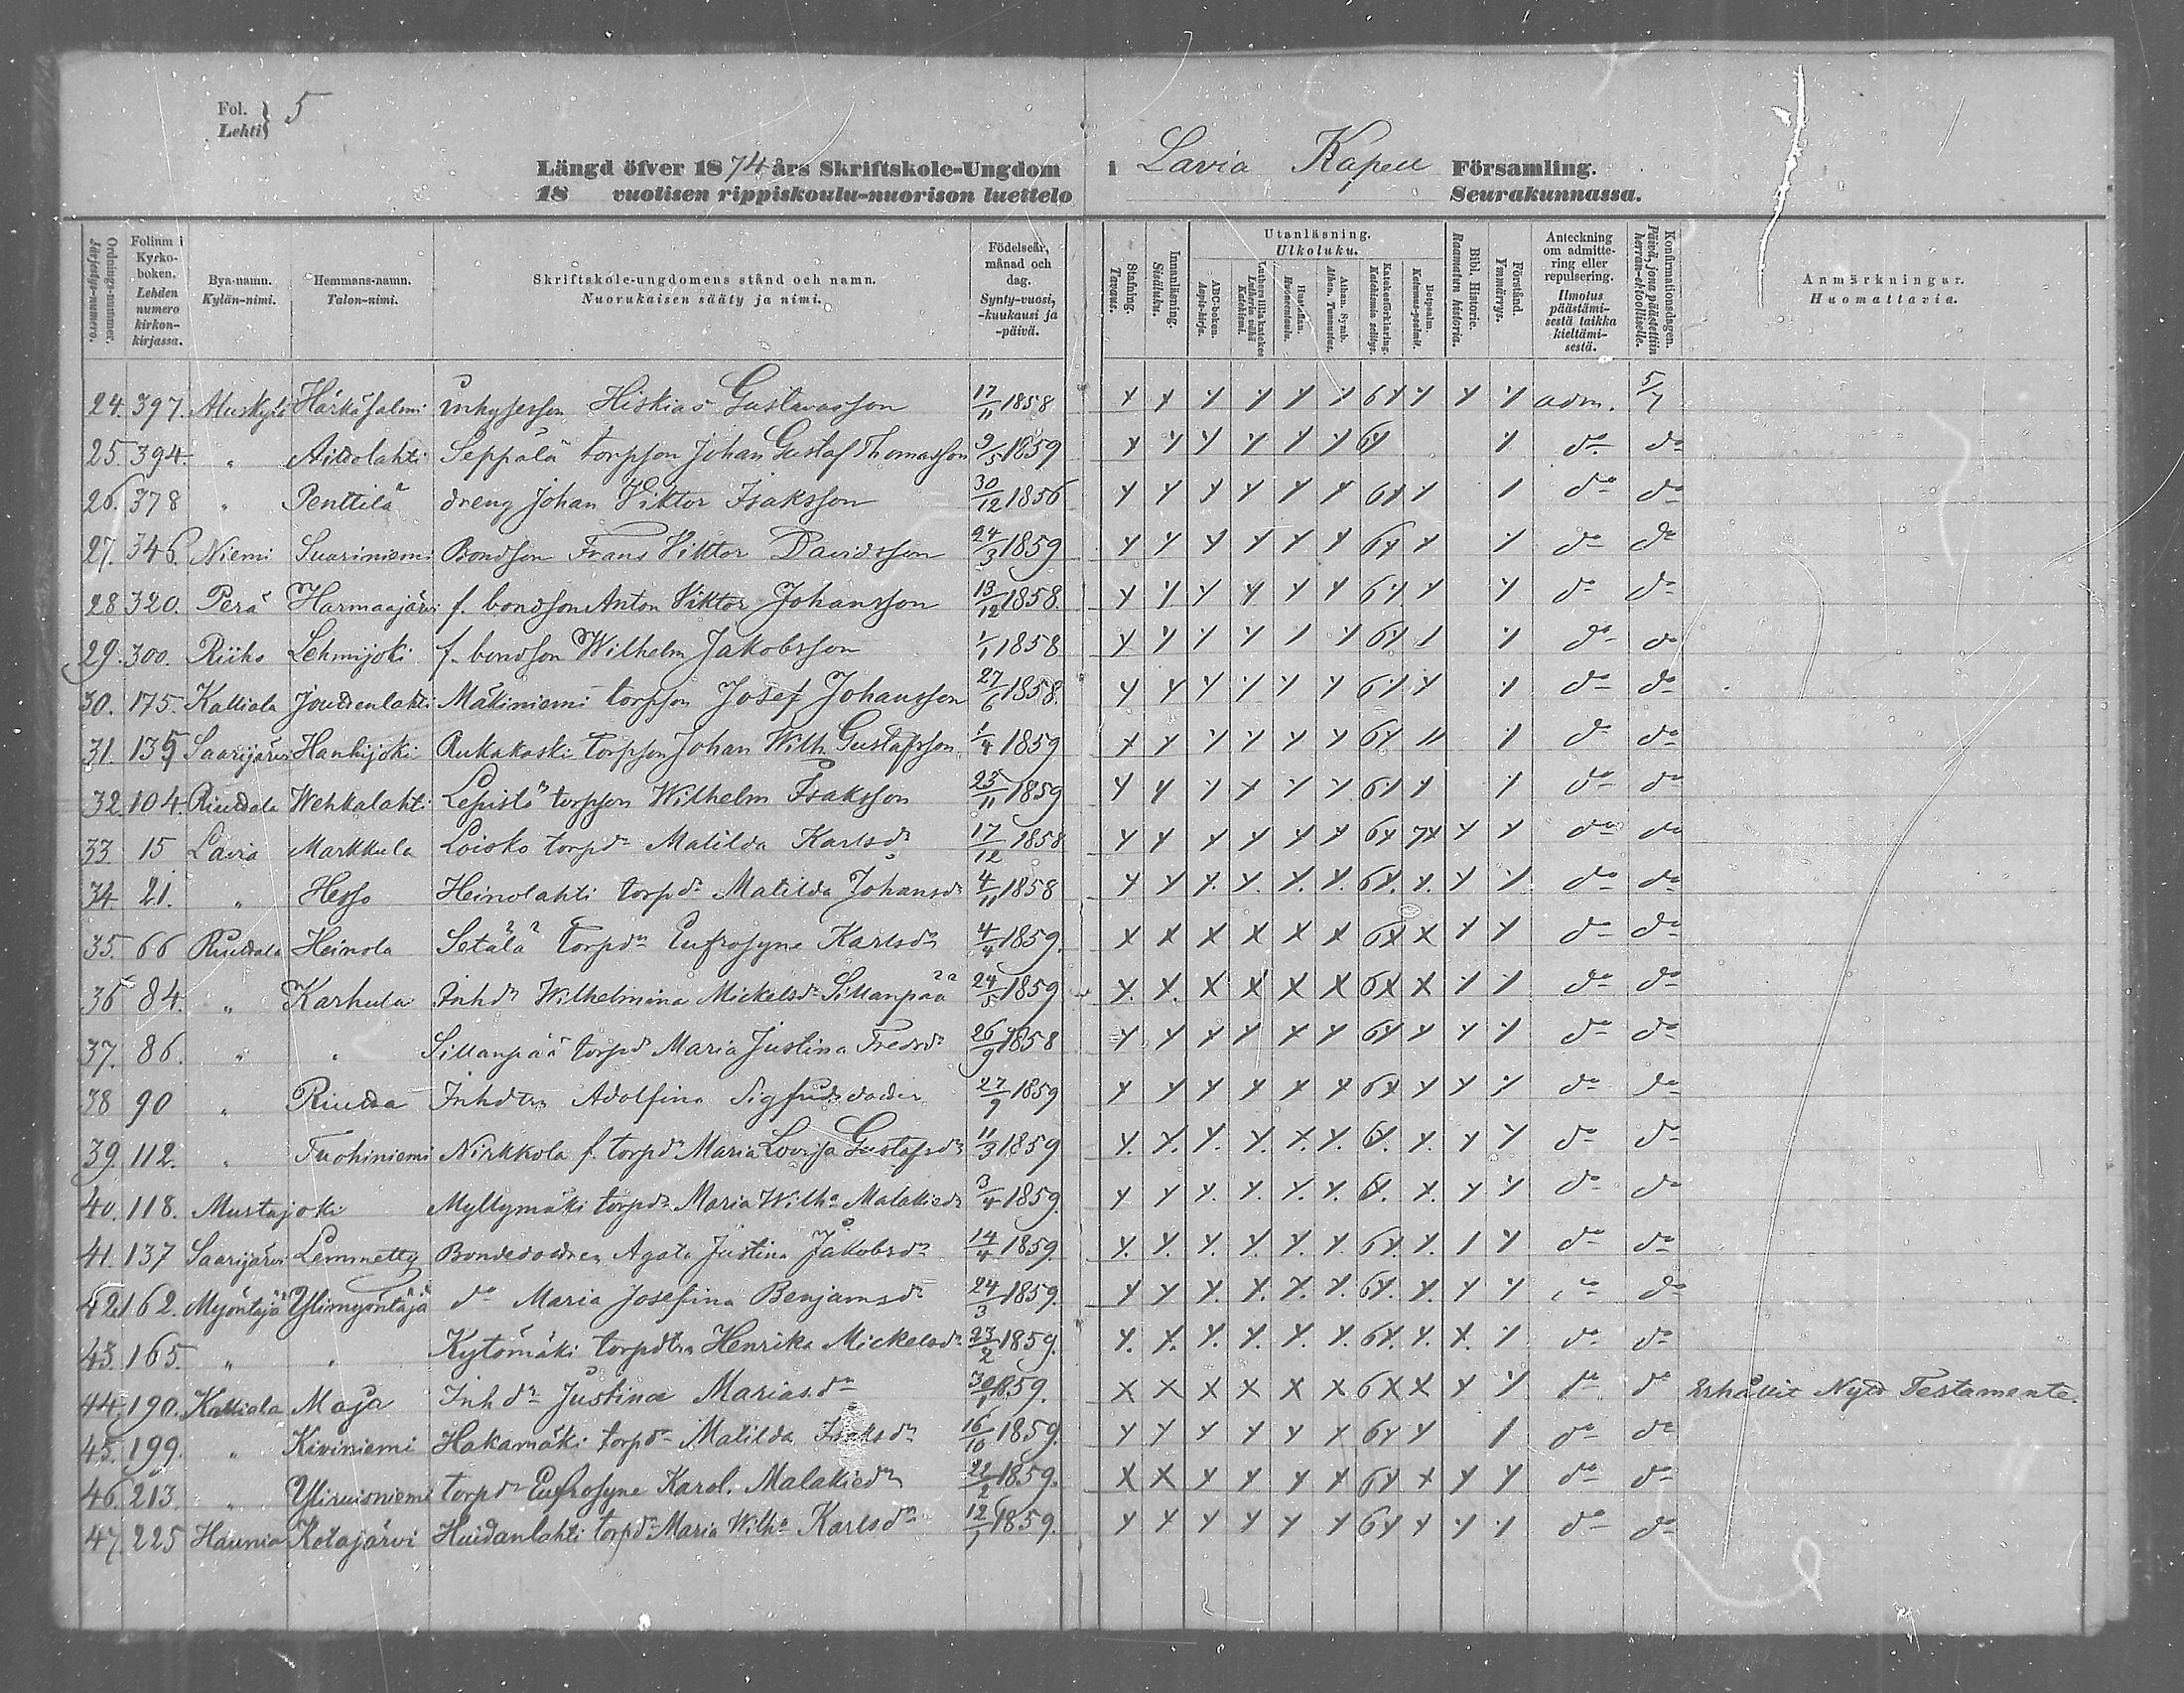 Fol. 5
Lehti
Längd öfver 1874 års Skriftskole-Ungdom i Lavia Kapell Församling.
18 vuotisen rippiskoulu-nuorison luettelo Seurakunnassa.
Ordnings-nummer. Järjestys-numero.
Folium i Kyrko-boken. Lehden numero kirkon-kirjassa.
Bya-namn. Kylän-nimi.
Hemmans-namn. Talon-nimi.
Skriftskole-ungdomens stånd och namn. Nuorukaisen sääty ja nimi.
Födelseår, månad och dag. Synty-vuosi, -kuukausi ja -päivä.
Stafning. Tavaus.
Innanläsning. Sisäluku.
Utanläsning. Ulkoluku.
ABC-boken. Aapis-kirja.
Luthers lilla katekes Lutherin vähä Katekismi.
Hustaflan. Huoneentaulu.
Athan. Symb. Athan. Tunnustus.
Katekesförklaring. Katekismin selitys.
Botpsalm. Katumus-psalmit.
Bibl. Historie. Raamatun historia.
Förstånd. Ymmärrys.
Anteckning om admittering eller repulsering. Ilmotus päästämisestä taikka kieltämisestä.
Konfirmationsdagen. Päivä, jona päästettiin herran-ehtoolliselle.
Anmärkningar. Huomattavia.
24. 397. Härkäsalmi Hiskias Gustavsson 17/11 1858 x x x x x x 6x x x x adm. 5/7
25. 394. " Aittolahti Seppälä torpson Johan Gustaf Thomasson 9/5 1859 x x x x x x 6x x do do
26. 378 " Penttilä dreng Johan Viktor Isaksson 30/12 1856 x x x x x x 6x x x do do
27. 346. Niemi Suariniemi Bondson Frans Viktor Davidsson 24/3 1859 x x x x x x 6x x x do do
28. 320. Perä Harmaajärvi f. bondson Anton Viktor Johansson 13/12 1858. x x x x x x 6x x x do do
29. 300. Riiho Lehmijoki f. bondson Wilhelm Jakobsson 1/1 1858 x x x x x x 6x x x do do
30. 175. Kalliala Jouttenlahti Mäkiniemi torpson Josef Johansson 27/6 1858. x x x x x x 6x x x do do
31. 135 Saarijärvi Hankijoki Rukakaski torpson Johan Wilh. Gustafsson 1/4 1859 x x x x x x 6x x x do do
32. 104. Riuttala Wehkalahti Lepistö torpson Wilhelm Isaksson 23/11 1859 x x x x x x 6x x x do do
33. 15 Lavia Markkula Loisko torpdr Matilda Karlsdr 17/12 1858 x x x x x x 6x 7x x x do do
34. 21. " Hesso Heinolahti torpdr Matilda Johansdr 4/11 1858 x x x x x x 6x x x x do do
35. 66 Riuttala Heinola Setälä torpdr Eufrosyne Karlsdr 4/4 1859. x x x x x x 6x x x x do do
36 84. " Karhula Inhdr Wilhelmina Mickelsdr Sillanpää 24/5 1859 x x x x x x 6x x x x do do
37. 86. " " Sillanpää torpdr Maria Justina Fredsdr 26/9 1858 x x x x x x 6x x x x do do
38 90 " Riutta Inhdtr Adolfina Sigfridsdotter 27/9 1859 x x x x x x 6x x x x do do
39. 112. " Tuohiniemi Nirkkola f. torpdr Maria Lovisa Gustafsdr 11/3 1859 x x x x x x 6x x x x do do
40. 118. Mustajoki Myllymäki torpdr Maria Wilha Malakiedr 3/4 1859. x x x x x x 6x x x x do do
41. 137 Saarijärvi Lemmetty Bondedotter Agata Justina Jakobsdr 14/4 1859. x x x x x x 6x x x x do do
42. 162. Myöntäjä Ylimyöntäjä do Maria Josefina Benjamsdr 24/3 1859. x x x x x x 6x x x x do do
43. 165. " " Kytömäki torpdtr Henrika Mickelsdr 23/2 1859. x x x x x x 6x x x x do do
44. 190. Kalliala Maja Inhdr Justina Mariasdr 1859. x x x x x x 6x x x x do do Erhållit Nytt Testamente.
45. 199. " Kiviniemi Hakamäki torpdr Matilda Isaksdr 16/10 1859. x x x x x x 6x x x do do
46. 213. " Yliruisniemi torpdr Eufrosyne Karol. Malakiedr 22/2 1859. x x x x x x 6x x x x do do
47. 225 Haunia Kotajärvi Huidanlahti torpdr Maria Wilha Karlsdr 12/1 1859. x x x x x x 6x x x x do do